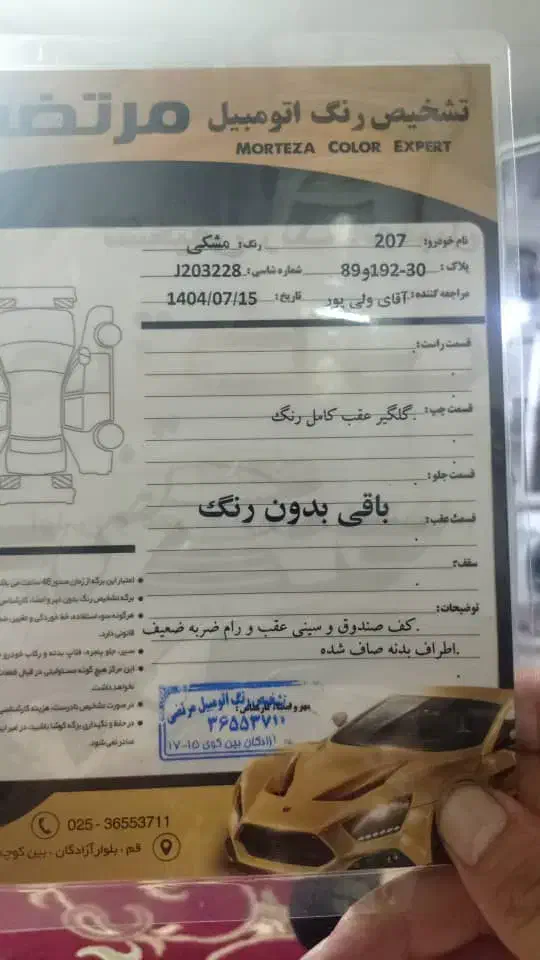 تشخیص رنگ اتومبیل مرتضی
MORTEZA COLOR EXPERT
نام خودرو: 207 رنگ: مشکی
پلاک: 30-192و89 شماره شاسی: J203228
مراجعه کننده: آقای ولی پور تاریخ: 1404/07/15
قسمت راست:
قسمت چپ: گلگیر عقب کامل رنگ.
قسمت جلو:
باقی بدون رنگ
قسمت عقب:
سقف:
توضیحات:
کف صندوق و سینی عقب و رام ضربه ضعیف.
اطراف بدنه صاف شده.
اعتبار این برگه از زمان صدور 48 ساعت می باشد
برگه تشخیص رنگ بدون مهر و امضاء کارشناسی
هرگونه سوء استفاده، خط خوردگی و تغییر
قانونی دارد.
این مرکز هیچ گونه مسئولیتی در قبال قطعات
نخواهد داشت.
در صورت تشخیص نادرست، هزینه کارشناسی
در حفظ و نگهداری برگه کوشا باشید، در غیر
صادر نمی شود.
مهر و امضاء کارشناس:
تشخیص رنگ اتومبیل مرتضی
۳۶۵۵۳۷۱۱
آزادگان بین کوی ۱۵-۱۷
025 - 36553711
قم ، بلوار آزادگان ، بین کوچه